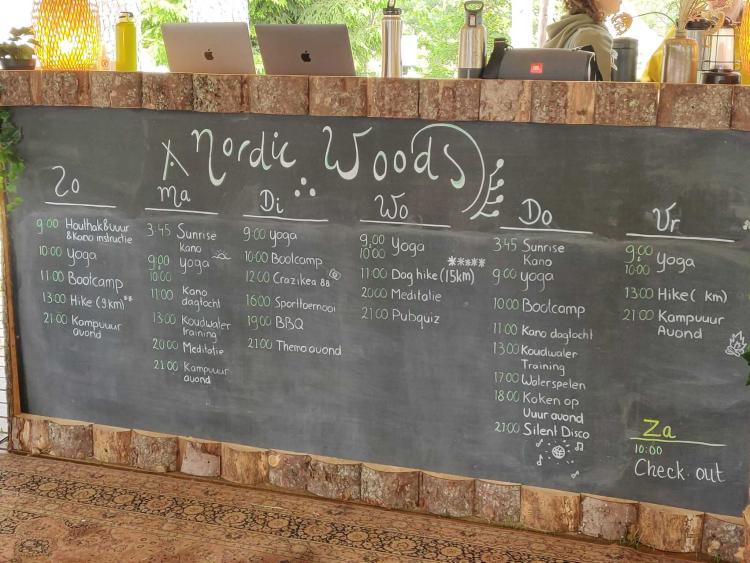 JBL
Nordic Woods
Zo
9:00 Houthak & vuur
& Kano instructie
10:00 Yoga
11:00 Bootcamp
13:00 Hike (9km)**
21:00 Kampvuur
avond
Ma
3:45 Sunrise
Kano
9:00
10:00 Yoga
11:00 Kano
dagtocht
13:00 Koudwater
training
20:00 Meditatie
21:00 Kampvuur
avond
Di
9:00 Yoga
10:00 Bootcamp
12:00 Crazikea 88
16:00 Sporttoernooi
19:00 BBQ
21:00 Thema avond
Wo
9:00
10:00 Yoga
*****
11:00 Dag hike (15km)
20:00 Meditatie
21:00 Pubquiz
Do
3:45 Sunrise
Kano
9:00 Yoga
10:00 Bootcamp
11:00 Kano dagtocht
13:00 Koudwater
Training
17:00 Waterspelen
18:00 Koken op
Vuur avond
21:00 Silent Disco
Vr
9:00
10:00 Yoga
13:00 Hike ( km)
21:00 Kampvuur
Avond
Za
10:00
Check-out